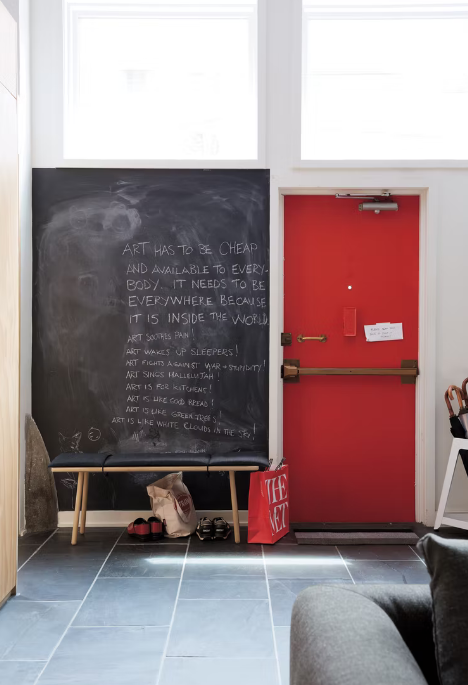 ART HAS TO BE CHEAP
AND AVAILABLE TO EVERY-
BODY. IT NEEDS TO BE
EVERYWHERE BECAUSE
IT IS INSIDE THE WORLD.
ART SOOTHES PAIN!
ART WAKES UP SLEEPERS!
ART FIGHTS AGAINST WAR + STUPIDITY!
ART SINGS HALLELUJAH!
ART IS FOR KITCHENS!
ART IS LIKE GOOD BREAD!
ART IS LIKE GREEN TREES!
ART IS LIKE WHITE CLOUDS IN THE SKY!
THE
MET